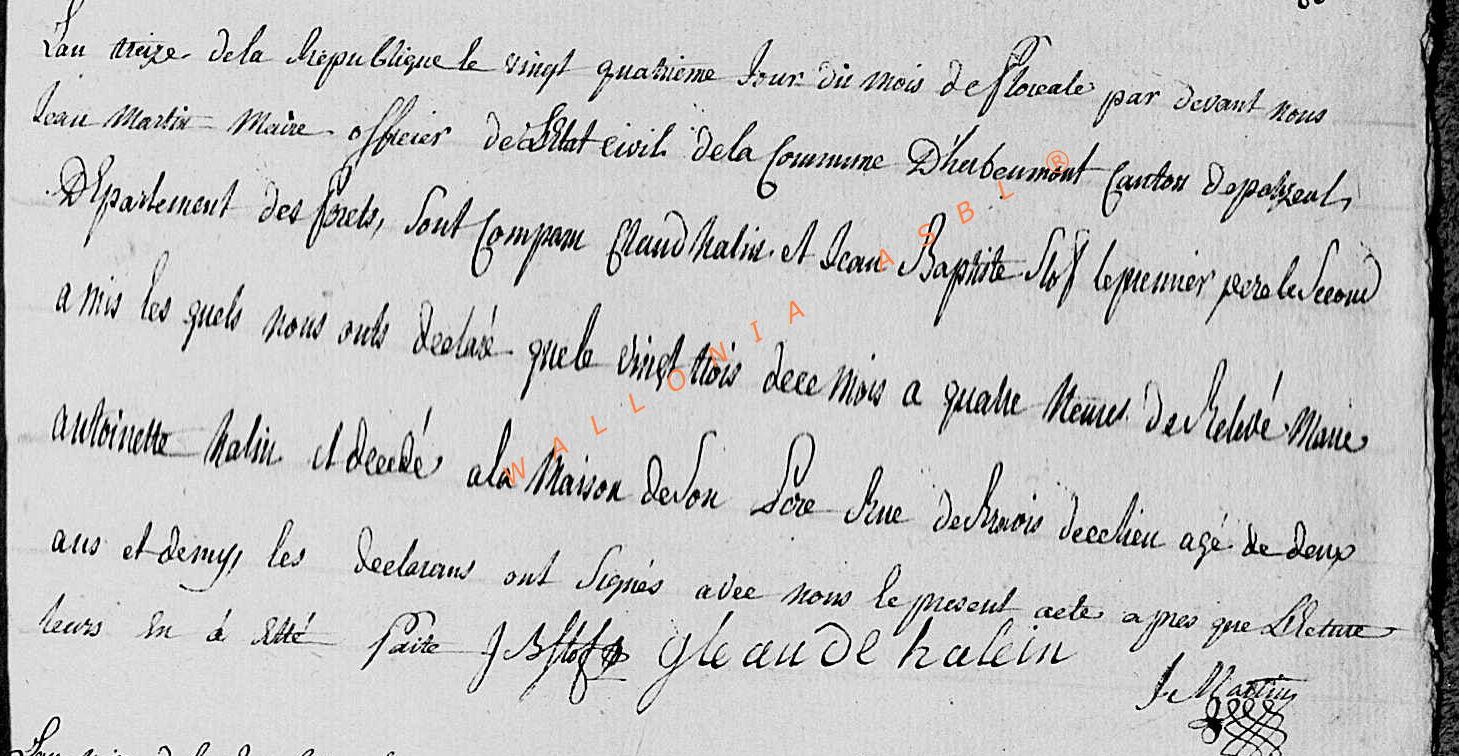 L'an treize de la Republique le vingt quatrieme Jour du mois de floreale par devant nous
Jean Martin Maire officier de L'Etat civil de la Commune D'herbeumont Canton de
DEpartement des forets, sont Comparu Claud halin et Jean Baptiste Slof le premier pere le second
amis les quels nous onts declaré que le vingt trois dece mois a quatre heures de Relevé Marie
antoinette halin et decedé a la Maison de son Pere Rue dece lieu agé de deux
ans et demy, les declarans ont signés avec nous le present acte apres que Lecture
leurs en á Etté faite J B Slof gleaude halein
J. Martin
WALLONIA ASBL ®
L'an de la